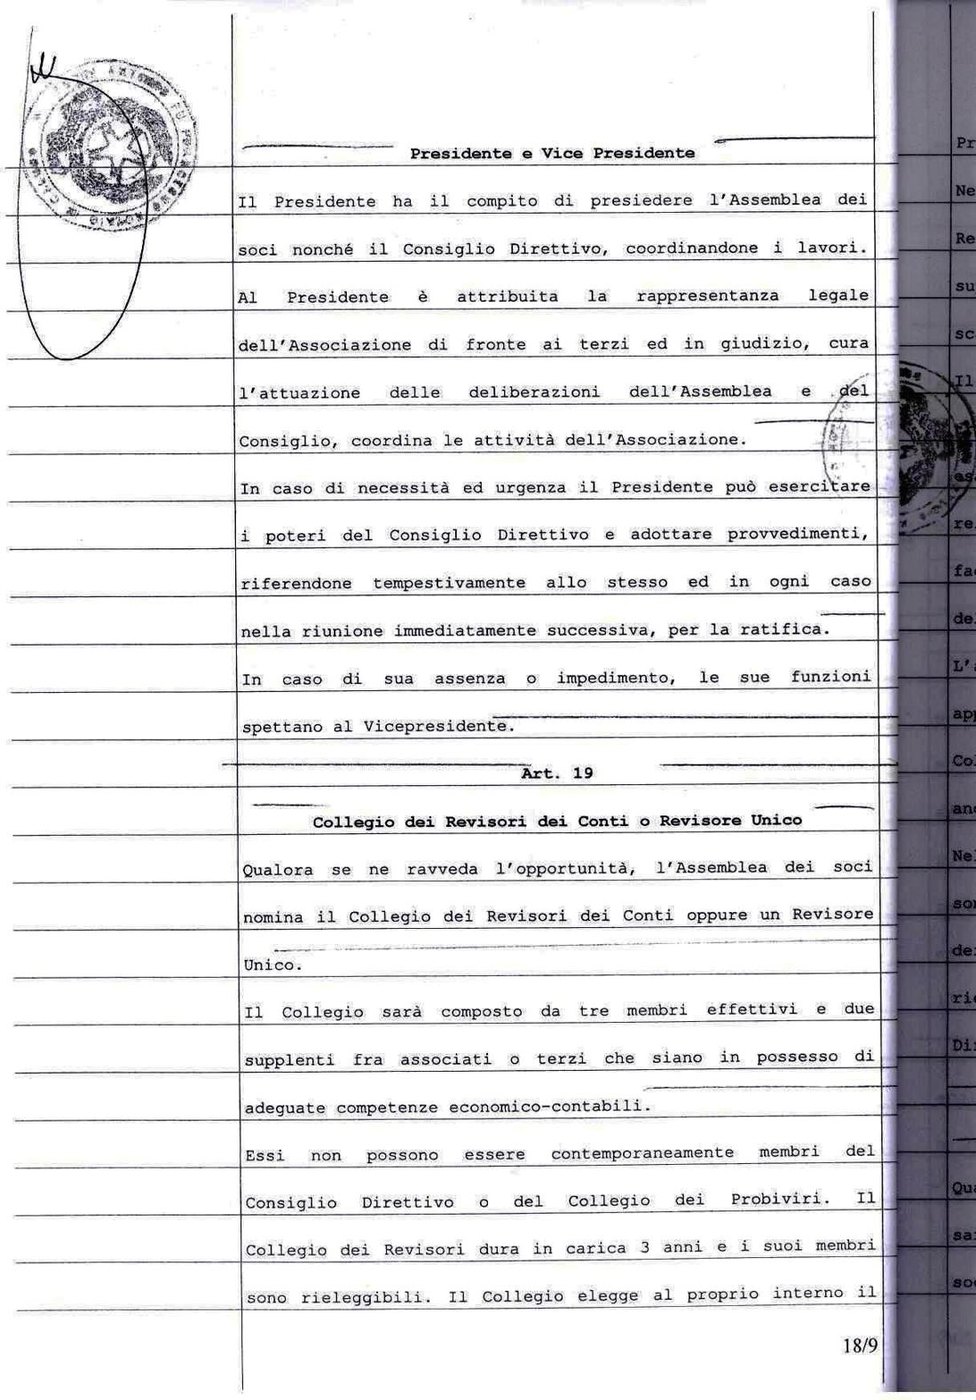 Presidente e Vice Presidente
Il Presidente ha il compito di presiedere l'Assemblea dei
soci nonché il Consiglio Direttivo, coordinandone i lavori.
Al Presidente è attribuita la rappresentanza legale
dell'Associazione di fronte ai terzi ed in giudizio, cura
l'attuazione delle deliberazioni dell'Assemblea e del
Consiglio, coordina le attività dell'Associazione.
In caso di necessità ed urgenza il Presidente può esercitare
i poteri del Consiglio Direttivo e adottare provvedimenti,
riferendone tempestivamente allo stesso ed in ogni caso
nella riunione immediatamente successiva, per la ratifica.
In caso di sua assenza o impedimento, le sue funzioni
spettano al Vicepresidente.
Art. 19
Collegio dei Revisori dei Conti o Revisore Unico
Qualora se ne ravveda l'opportunità, l'Assemblea dei soci
nomina il Collegio dei Revisori dei Conti oppure un Revisore
Unico.
Il Collegio sarà composto da tre membri effettivi e due
supplenti fra associati o terzi che siano in possesso di
adeguate competenze economico-contabili.
Essi non possono essere contemporaneamente membri del
Consiglio Direttivo o del Collegio dei Probiviri. Il
Collegio dei Revisori dura in carica 3 anni e i suoi membri
sono rieleggibili. Il Collegio elegge al proprio interno il
18/9